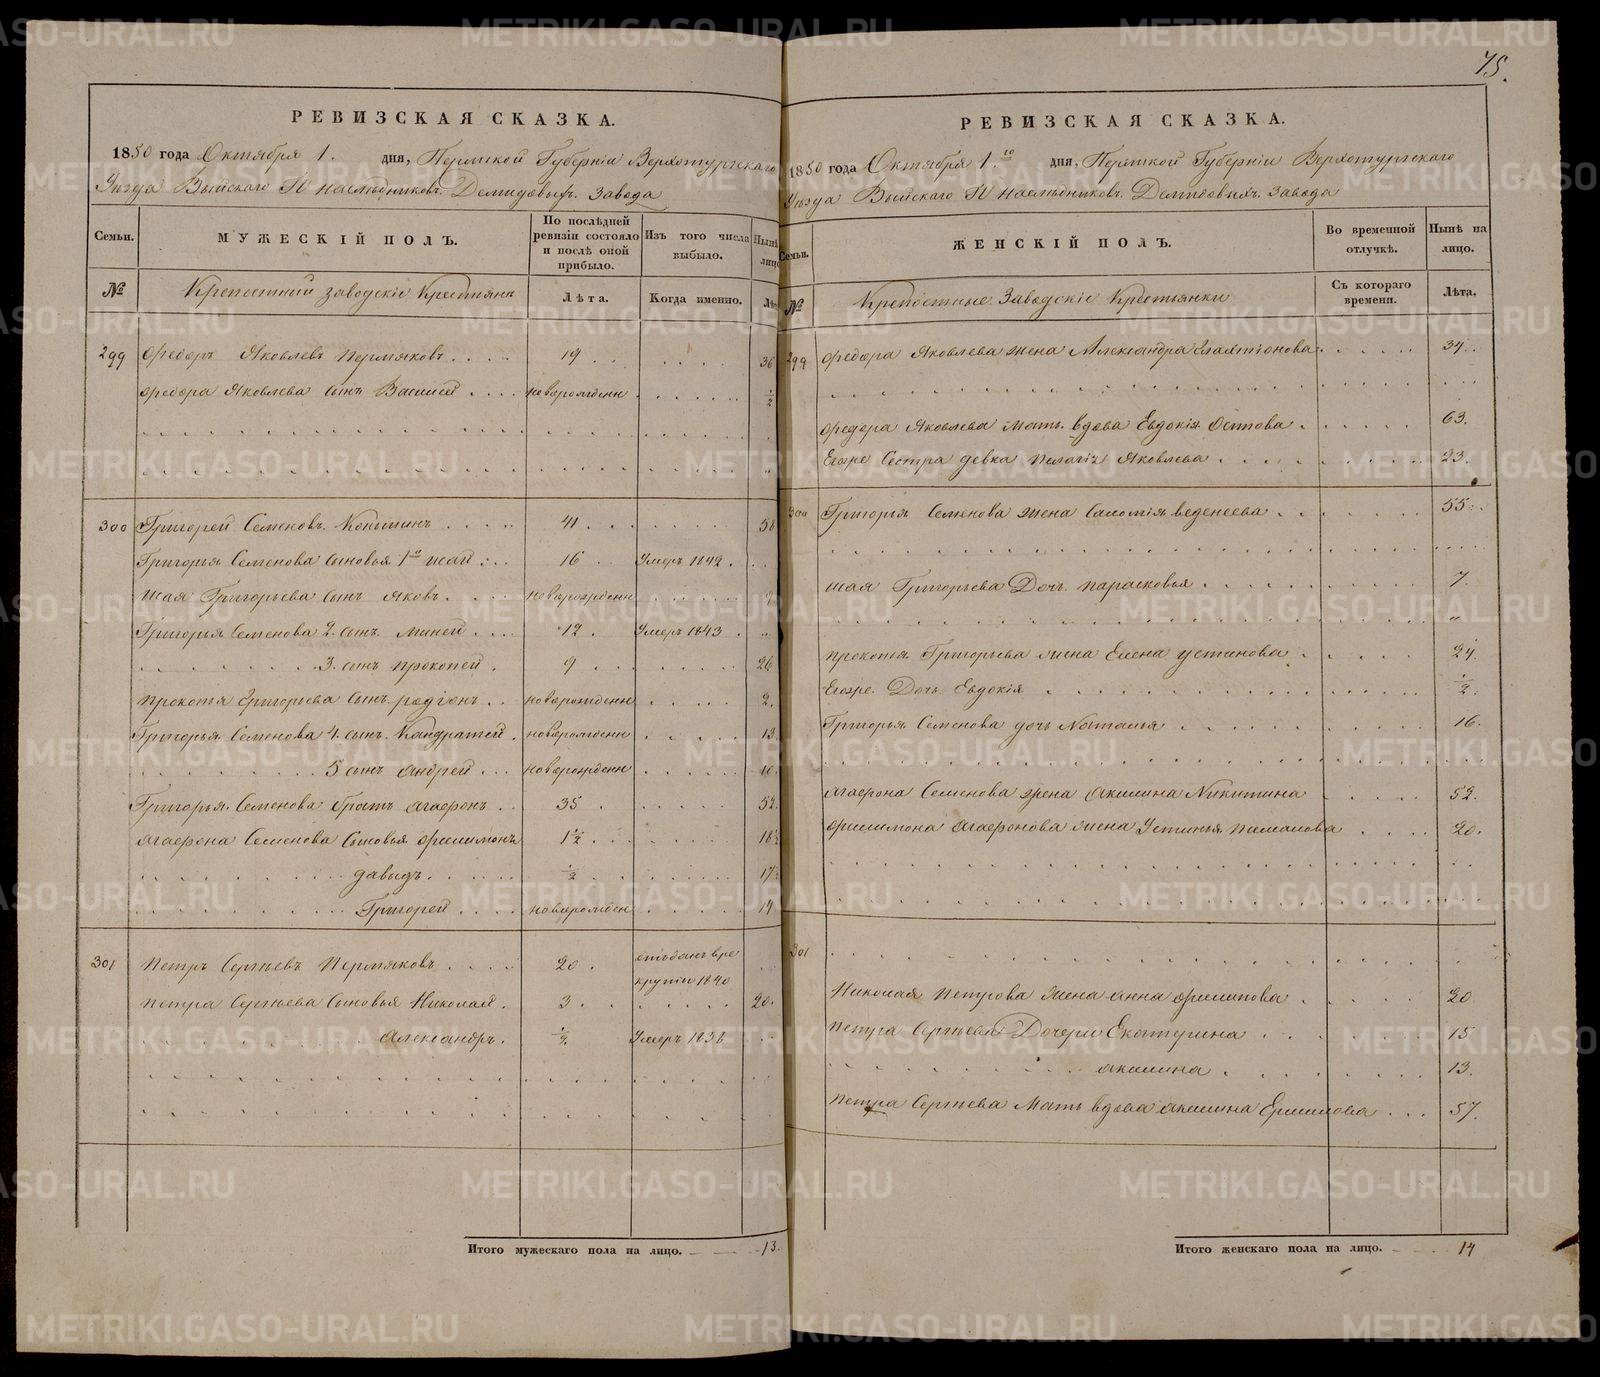 75.
РЕВИЗСКАЯ СКАЗКА.
1850 года Октября 1. дня, Пермской Губернiи Верхотурскаго
Уезда Выйскаго Гг наследниковъ Демидовыхъ завода
Семьи.
МУЖЕСКIЙ ПОЛЪ.
По послѣдней ревизiи состояло и послѣ оной прибыло.
Изъ того числа выбыло.
№
Крепостнии заводскiе Крестьяне
Лѣта.
Когда именно.
299 Федоръ Яковлевъ Пермяковъ 19 36
Федора Яковлева сынъ Василей новорожденн ½
300 Григорей Семеновъ Копытинъ 41
Григорья Семенова сыновья 1й Исай 16 Умеръ 1842.
Исая Григорьева сынъ Яковъ новорожденн
Григорья Семенова 2. сынъ Миней 12. Умеръ 1843. "
3. сынъ Прокопей 9 26
Прокопья Григорьева сынъ Родiонъ новорожденн 2.
Григорья Семенова 4. сынъ Кандратей новорожденн 13.
5 сынъ Андрей новорожденн
Григорья Семенова братъ Агафонъ 35 52.
Агафона Семенова сыновья Филимонъ 1½
давыдъ ½ 17
Григорей новорожден 14
301 Петръ Сергѣевъ Пермяковъ 20 отъданъ вре
крути 1840
Петра Сергѣева Сыновья Николай 3 20.
Александръ ½ Умеръ 1838
Итого мужескаго пола на лицо. 13.
РЕВИЗСКАЯ СКАЗКА.
1850 года Октября 1.го дня, Пермской Губернiи Верхотурскаго
Уезда Выйскаго Гг наследниковъ Демидовыхъ завода
Семьи.
ЖЕНСКIЙ ПОЛЪ.
Во временной отлучкѣ.
Нынѣ на лицо.
№
Крепостные Заводскiе Крестьянки
Съ котораго времени.
Лѣта.
299 Федора Яковлева жена Александра Галактiонова 34
Федора Яковлева мать вдова Евдокiя 63.
Егоже Сестра девка Пелагiя Яковлева 23.
300 Григорья Семенова жена Саломiя веденеева 55
Исая Григорьева Дочь Парасковья 7
Прокопья Григорьева жена Елена Устинова 24.
Егоже Дочь Евдокiя ½.
Григорья Семенова дочь Наталья 16.
Агафона Семенова жена Акилина Никитина 52.
Филимона Агафонова жена Устинья 20.
301
Николая Петрова жена Анна Филипова 20
Петра Сергѣева Дочери Екатерина 15
Акилина 13.
Петра Сергѣева Мать вдова Акилина 57.
Итого женскаго пола на лицо. 14
METRIKI.GASO-URAL.RU